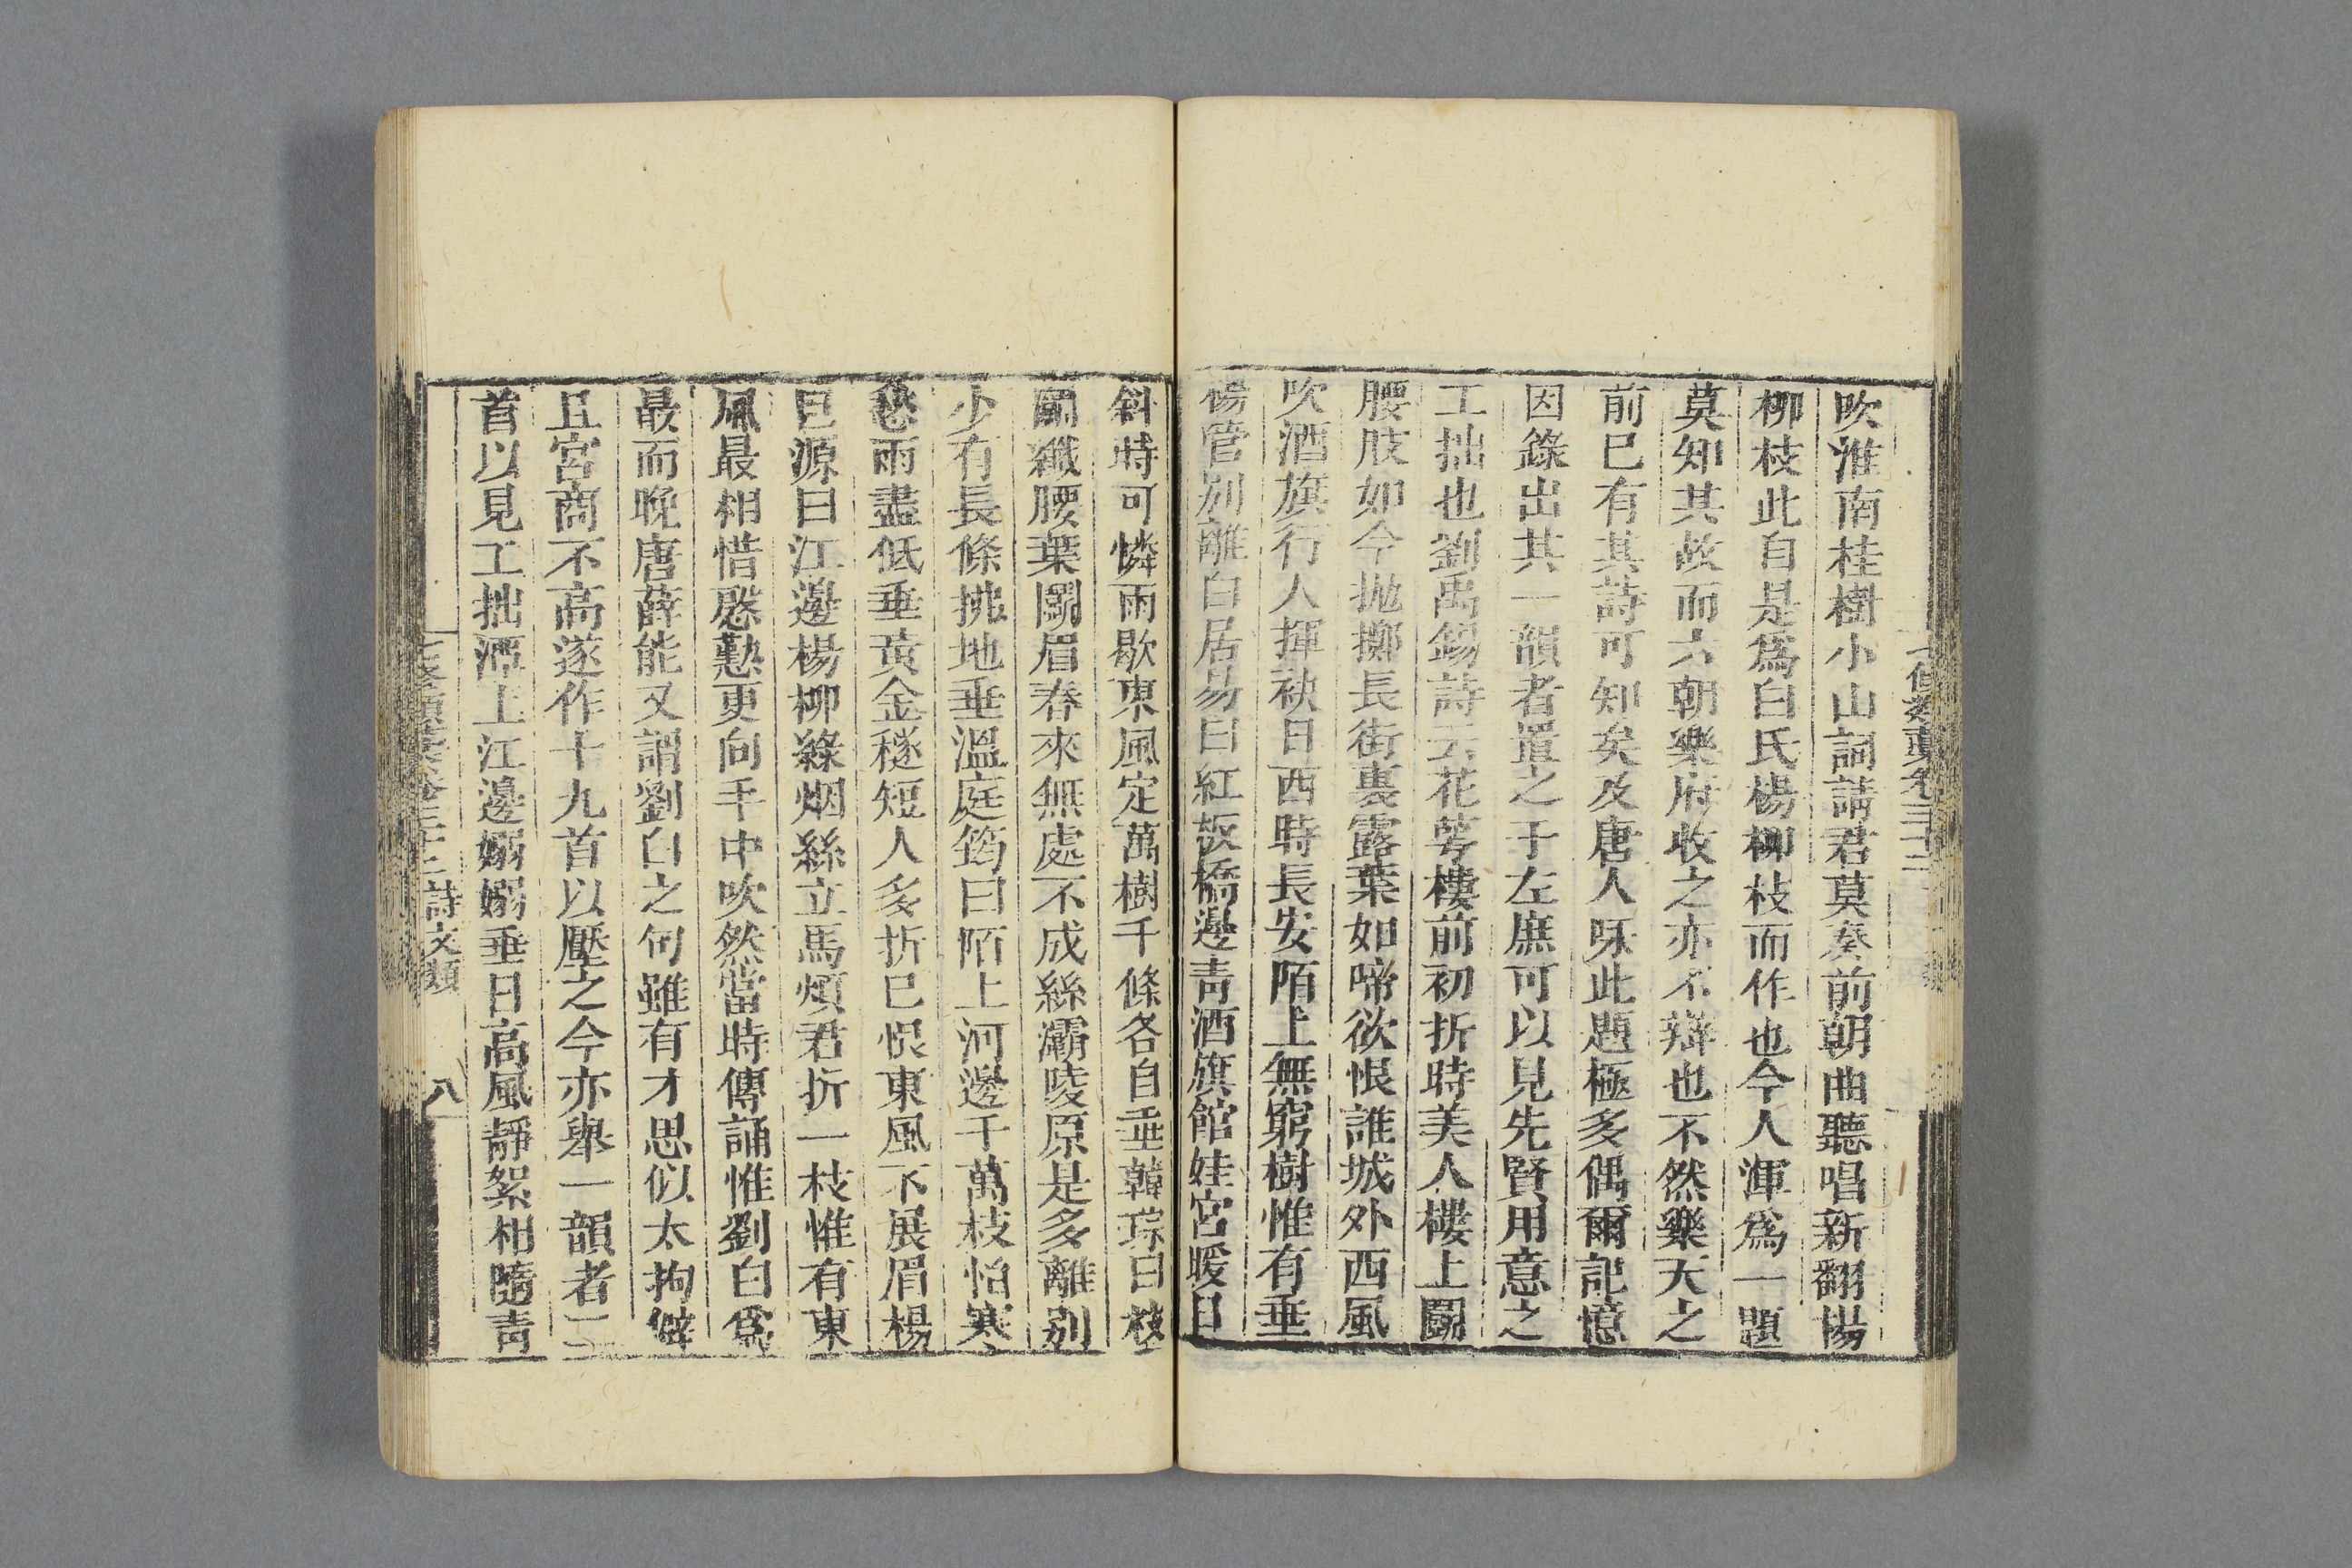 七修類藁卷三十二
吹淮南桂樹小山詞請君莫奏前朝曲聽唱新翻楊
柳枝此自是爲白氏楊柳枝而作也今人渾爲一題
莫知其故而六朝樂府收之亦不辯也不然樂天之
前已有其詩可知矣及唐人咏此題極多偶爾記憶
因錄出其一韻者置之于左庶可以見先賢用意之
工拙也劉禹錫詩云花萼樓前初折時美人樓上鬭
腰肢如今拋擲長街裏露葉如啼欲恨誰城外西風
吹酒旗行人揮袂日西時長安陌上無窮樹惟有垂
楊管別離白居易曰紅板橋邊青酒旗館娃宮暖日
斜時可憐雨歇東風定萬樹千條各自垂韓琮曰枝
鬭纖腰葉鬭眉春來無處不成絲灞陵原是多離別
少有長條拂地垂溫庭筠曰陌上河邊千萬枝怕寒
愁雨盡低垂黃金穟短人多折已恨東風不展眉楊
巨源曰江邊楊柳綠烟絲立馬煩君折一枝惟有東
風最相惜慇懃更向手中吹然當時傳誦惟劉白爲
最而晚唐薛能又謂劉白之句雖有才思似太拘僻
且宮商不高遂作十九首以壓之今亦舉一韻者二
首以見工拙潭上江邊嫋嫋垂日高風靜絮相隨青
七修類藁卷三十二 詩文類 八